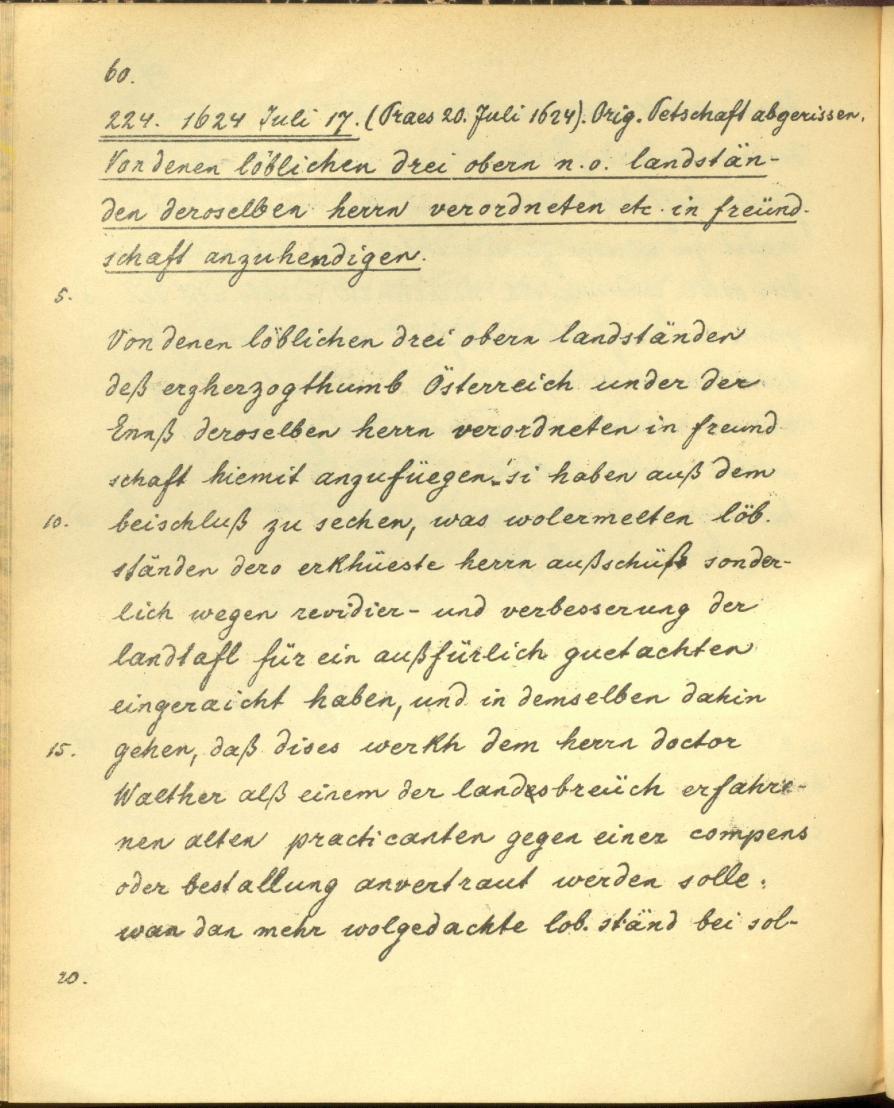 60.
224. 1624 Juli 17. (Praes 20. Juli 1624). Orig. Petschaft abgerissen.
Von denen löblichen drei obern n.o. landstän-
den deroselben herrn verordneten etc. in freünd-
schaft anzuhendigen.
5.
Von denen löblichen drei obern landständen
deß erzherzogthumb Österreich under der
Ennß deroselben herrn verordneten in freund
schaft hiemit anzufüegen. si haben auß dem
10. beischluß zu sechen, was wolermelten löb.
ständen dero erkhüeste herrn außschüß sonder-
lich wegen revidier- und verbesserung der
landtafl für ein außfürlich guetachten
eingeraicht haben, und in demselben dahin
15. gehen, daß dises werkh dem herrn doctor
Walther alß einem der landesbreüch erfahre-
nen alten practicanten gegen einer compens
oder bestallung anvertraut werden solle.
wan dan mehr wolgedachte lob. ständ bei sol-
20.